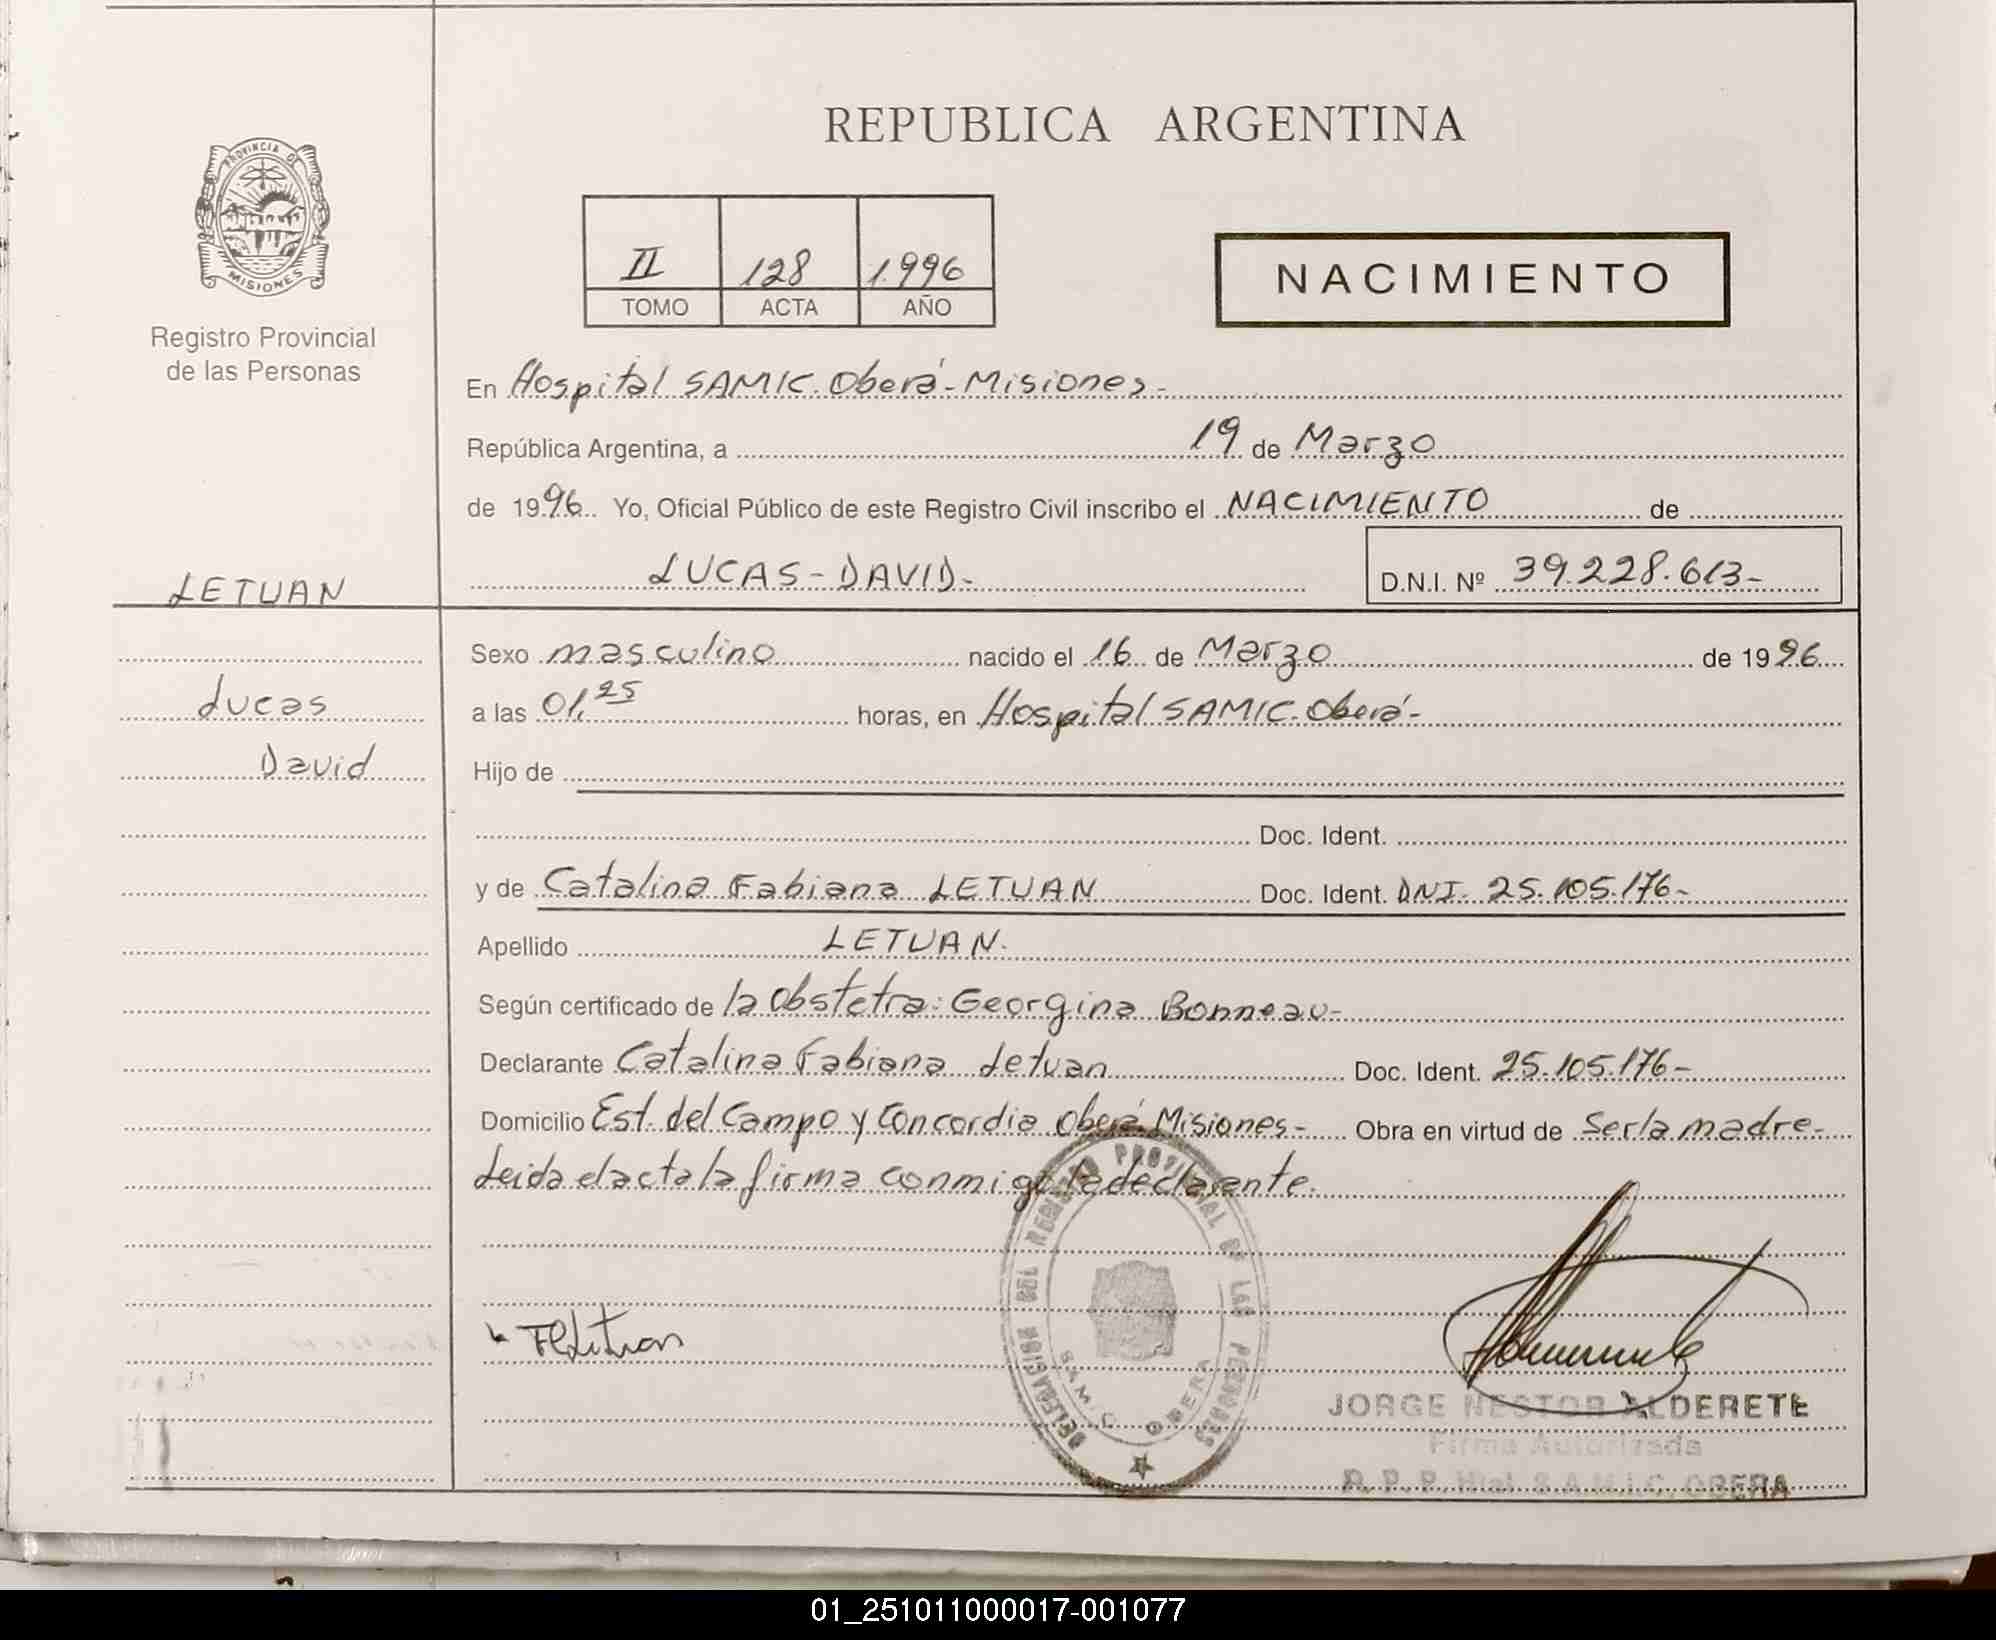 REPUBLICA ARGENTINA
PROVINCIA DE
MISIONES
Registro Provincial
de las Personas
II 128 1.996
TOMO ACTA AÑO
NACIMIENTO
En Hospital SAMIC. Oberá - Misiones -
República Argentina, a 19 de Marzo
de 1996 Yo, Oficial Público de este Registro Civil inscribo el NACIMIENTO de
LUCAS - DAVID - D.N.I. Nº 39.228.613 -
LETUAN
Lucas
David
Sexo masculino nacido el 16 de Marzo de 1996
a las 01.25 horas, en Hospital SAMIC. Oberá -
Hijo de
Doc. Ident.
y de Catalina Fabiana LETUAN Doc. Ident. DNI. 25.105.176 -
Apellido LETUAN.
Según certificado de la Obstetra: Georgina Bonneau -
Declarante Catalina Fabiana Letuan Doc. Ident. 25.105.176 -
Domicilio Est. del Campo y Concordia Oberá Misiones - Obra en virtud de Ser la madre -
Leida el acta la firma conmigo la declarante.
DELEGACION DEL REGISTRO PROVINCIAL DE LAS PERSONAS
S.A.M.I.C. OBERA
JORGE NESTOR ALDERETE
Firma Autorizada
R. P. P. Htal. S.A.M.I.C. OBERA
01_251011000017-001077